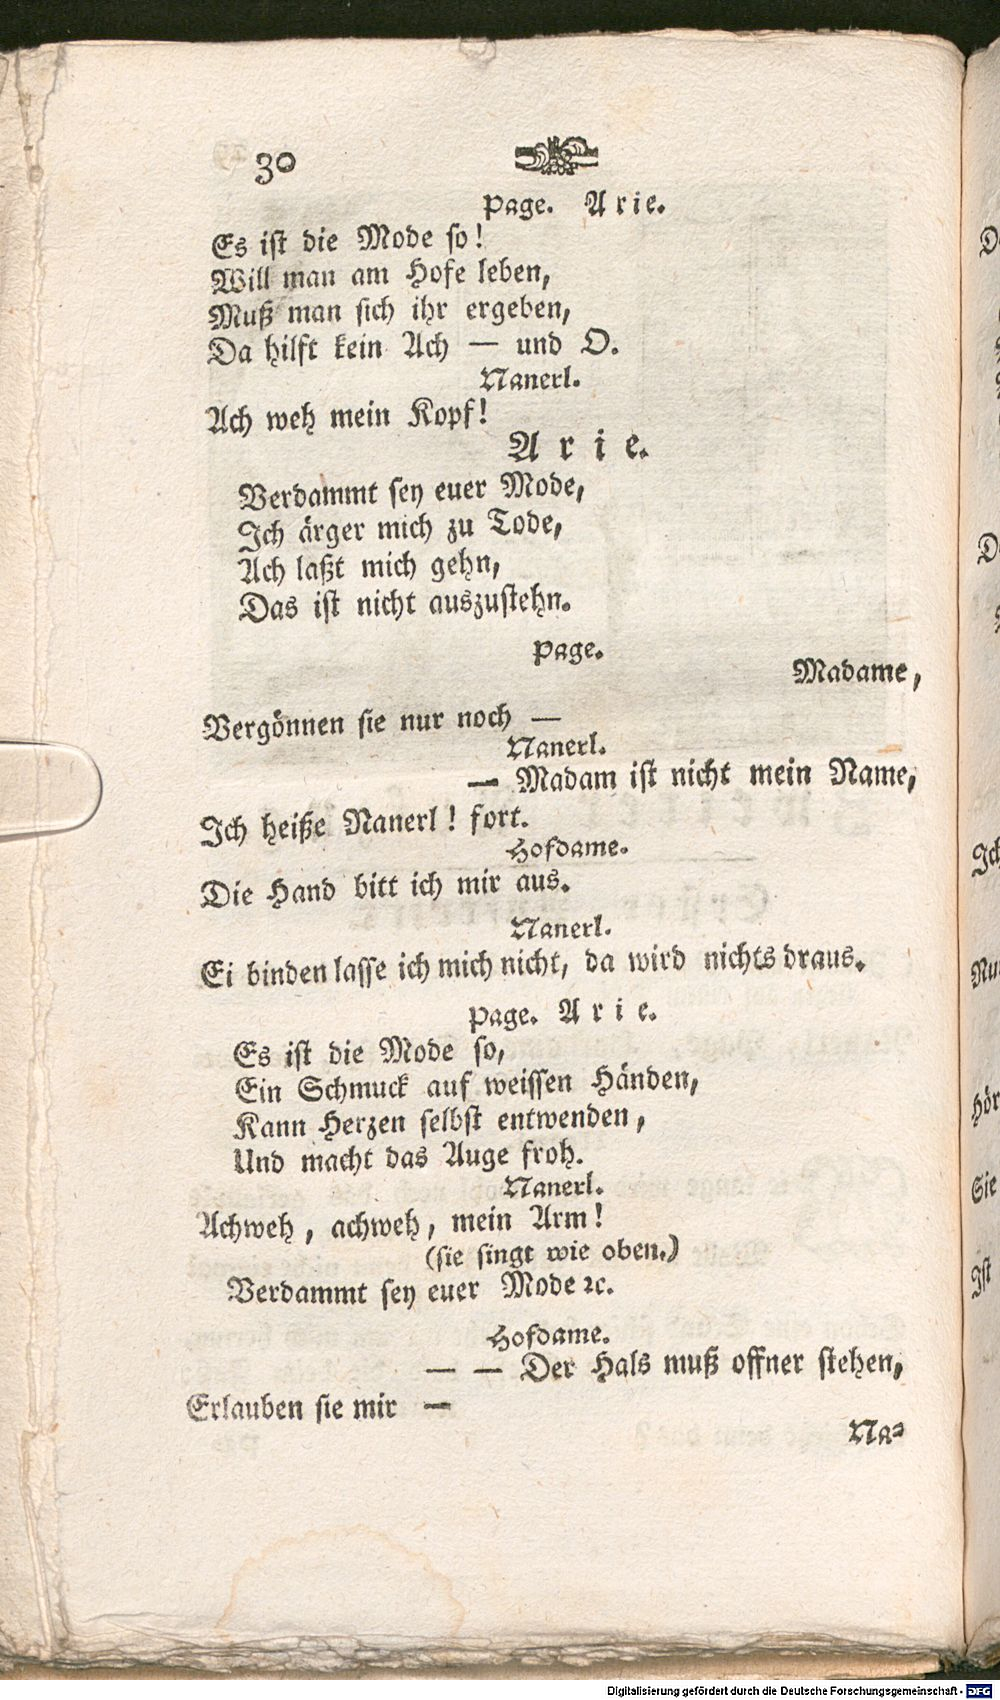 30
Page. Arie.
Es ist die Mode so!
Will man am Hofe leben,
Muß man sich ihr ergeben,
Da hilft kein Ach — und O.
Nanerl.
Ach weh mein Kopf!
Arie.
Verdammt sey euer Mode,
Ich ärger mich zu Tode,
Ach laßt mich gehn,
Das ist nicht auszustehn.
Page.
Madame,
Vergönnen sie nur noch —
Nanerl.
— Madam ist nicht mein Name,
Ich heiße Nanerl! fort.
Hofdame.
Die Hand bitt ich mir aus.
Nanerl.
Ei binden lasse ich mich nicht, da wird nichts draus.
Page. Arie.
Es ist die Mode so,
Ein Schmuck auf weissen Händen,
Kann Herzen selbst entwenden,
Und macht das Auge froh.
Nanerl.
Achweh, achweh, mein Arm!
(sie singt wie oben.)
Verdammt sey euer Mode ꝛc.
Hofdame.
— — Der Hals muß offner stehen,
Erlauben sie mir —
Na-
Ich
Hör
Sie
Ist
Digitalisierung gefördert durch die Deutsche Forschungsgemeinschaft - DFG